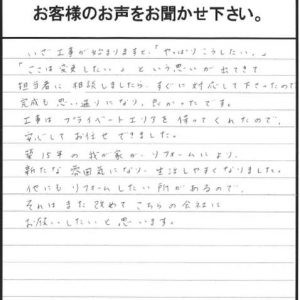 お客様のお声をお聞かせ下さい。
いざ工事が始まりますと、「やっぱりこうしたい。」
「ここは変更したい。」という思いが出てきて
担当者に相談しましたら、すぐに対応して下さったので
完成も思い通りになり、良かったです。
工事はプライベートエリアを保ってくれたので、
安心してお任せできました。
築15年の我が家が、リフォームにより、
新たな雰囲気になり、生活しやすくなりました。
他にもリフォームしたい所があるので、
それはまた改めてこちらの会社に
お願いしたいと思います。